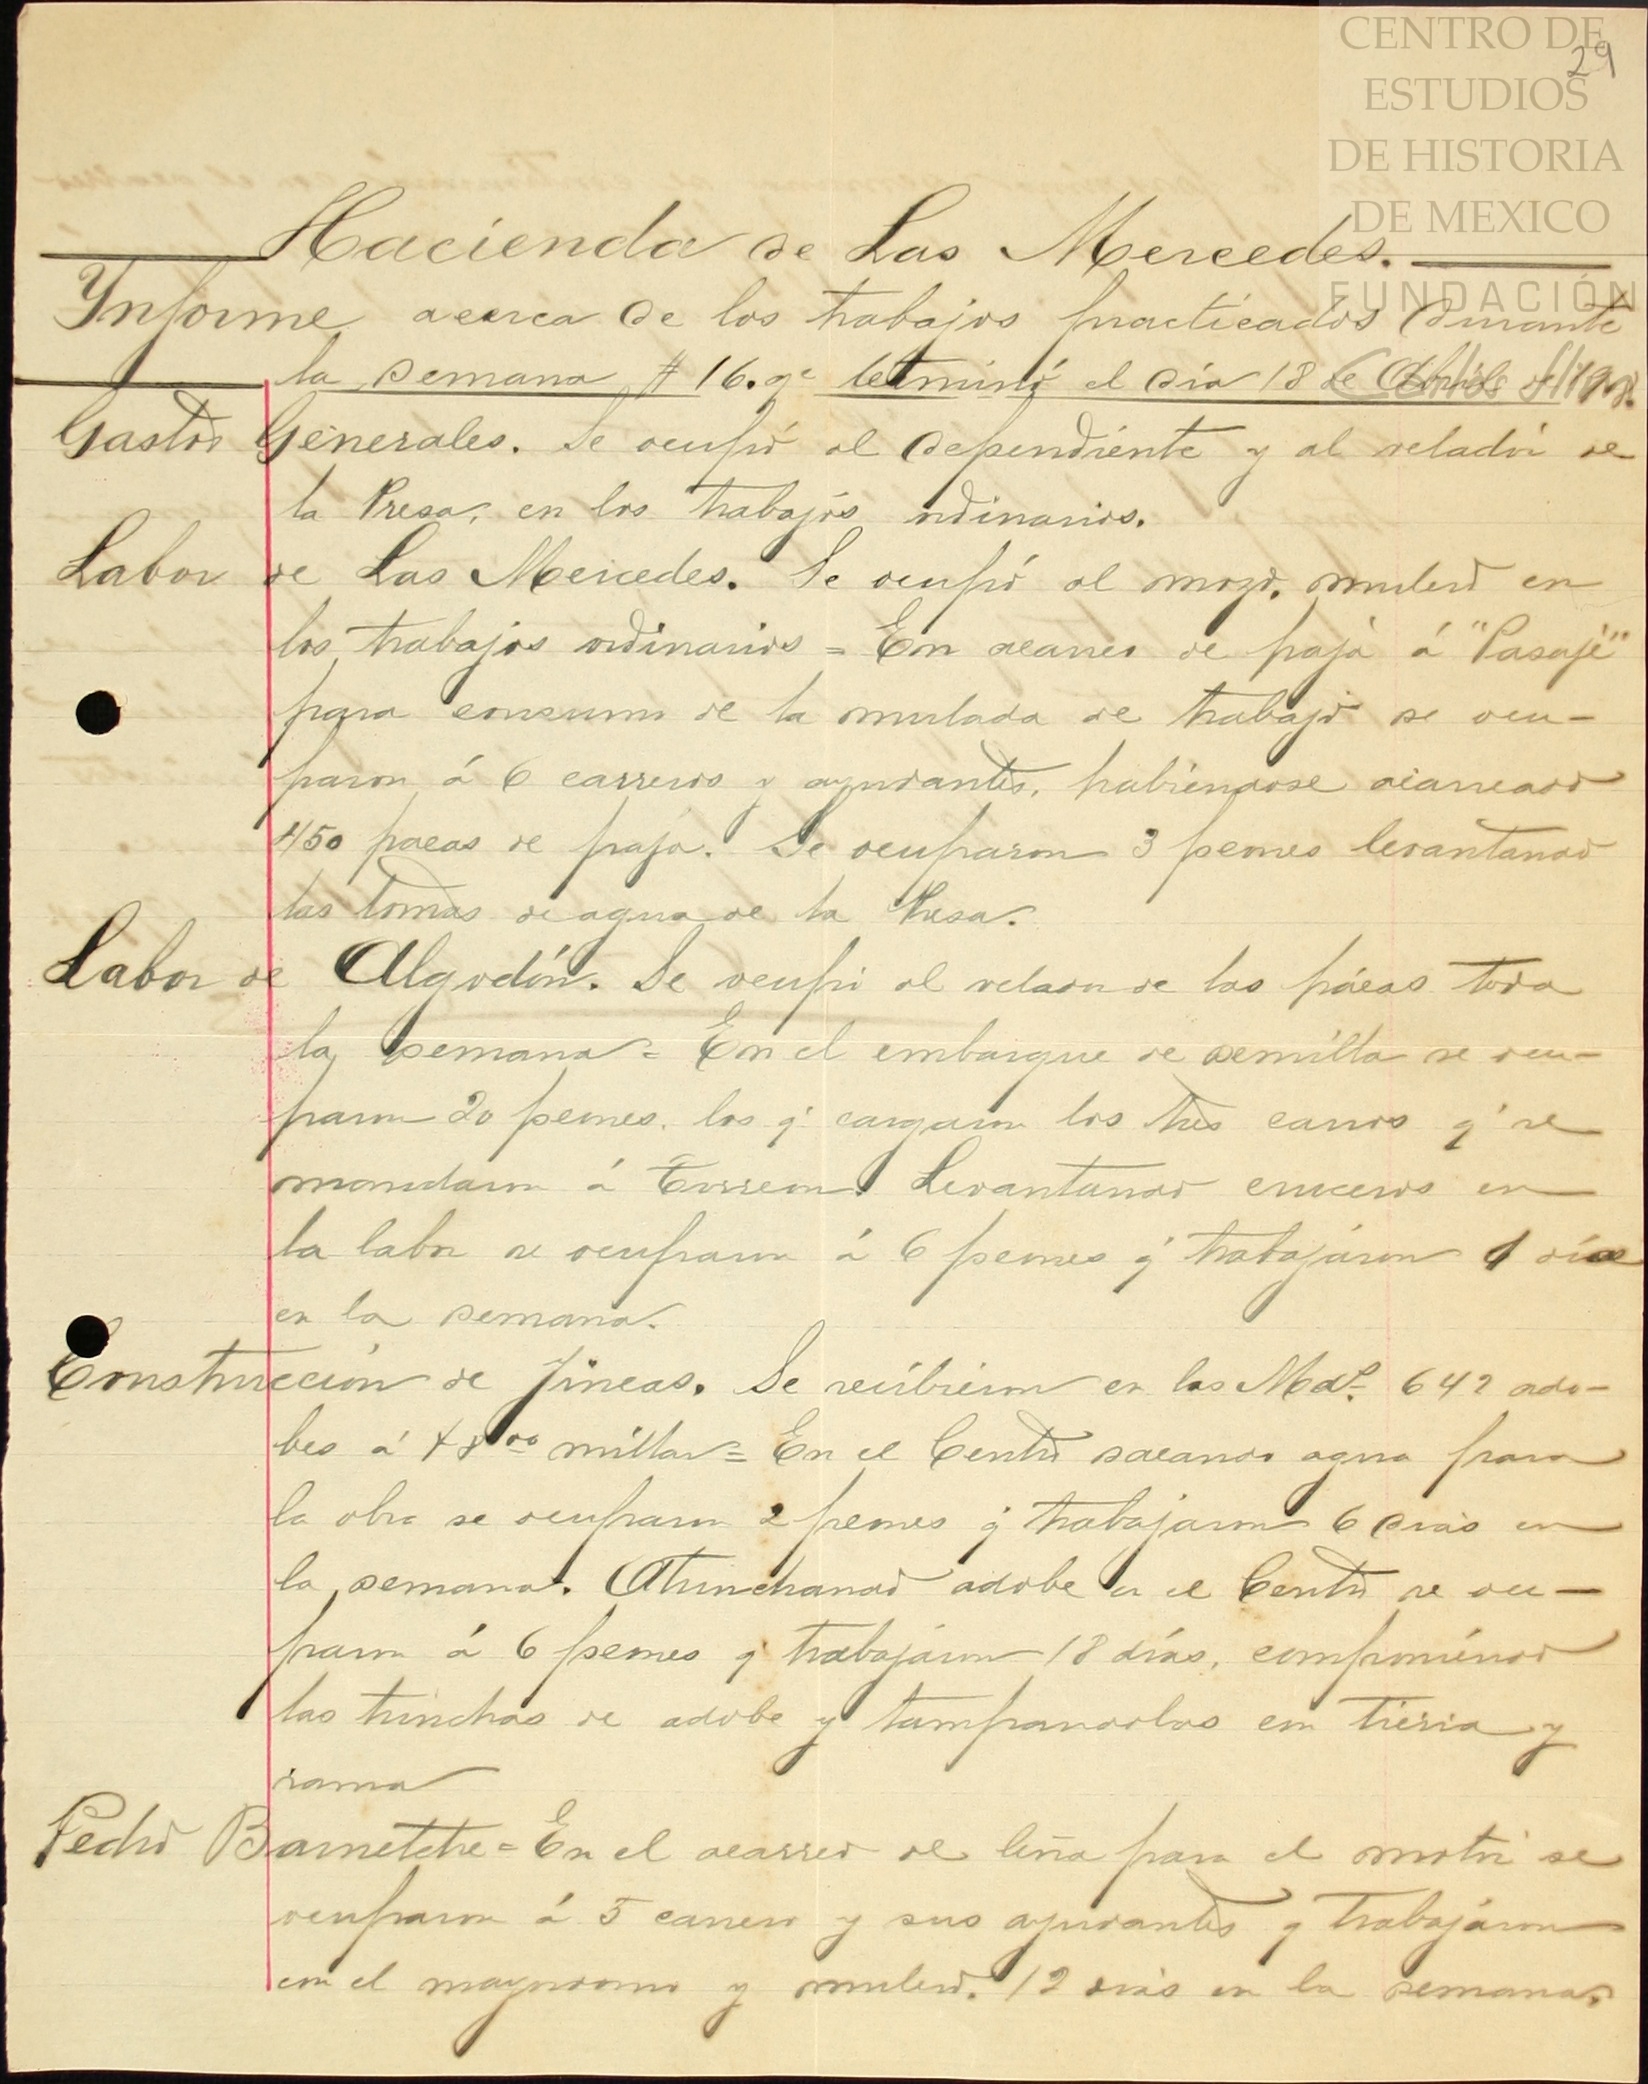 CENTRO DE
ESTUDIOS
DE HISTORIA
DE MEXICO
FUNDACIÓN
29
Hacienda de Las Mercedes.
Ynforme acerca de los trabajos practicados durante
la semana # 16. qe terminó el día 18 de Abril de
Gastos Generales. Se ocupó al dependiente y al velador de
la Presa, en los trabajos ordinarios.
Labor de Las Mercedes. Se ocupó al mozo, mulero en
los trabajos ordinarios = En acarreo de paja á "Pasaje"
para consumo de la mulada de trabajo se ocu-
paron á 6 carreros y ayudantes, habiéndose acarreado
450 pacas de paja. Se ocuparon 3 peones levantando
las tomas de agua de la Presa.
Labor de Algodón. Se ocupó al velador de las pácas toda
la semana = En el embarque de semilla se ocu-
paron 20 peones, los q' cargaron los tres carros q' se
mandaron á Torreon. Levantando cruceros en
la labor se ocuparon á 6 peones q' trabajáron días
en la semana.
Construcción de fincas. Se recibieron en las Mds. 642 ado-
bes á $ 8 00 millar = En el Centro sacando agua para
la obra se ocuparon 2 peones q' trabajaron 6 días en
la semana. Atrinchando adobe en el Centro se ocu-
paron á 6 peones q' trabajáron 18 días, componiéndo
las trinchas de adobe y tampandolas con tierra y
rama
Pedro Barnetche = En el acarreo de leña para el motor se
ocuparon á 5 carrero y sus ayudantes q' trabajáron
con el mayordomo y mulero. 12 días en la semana.